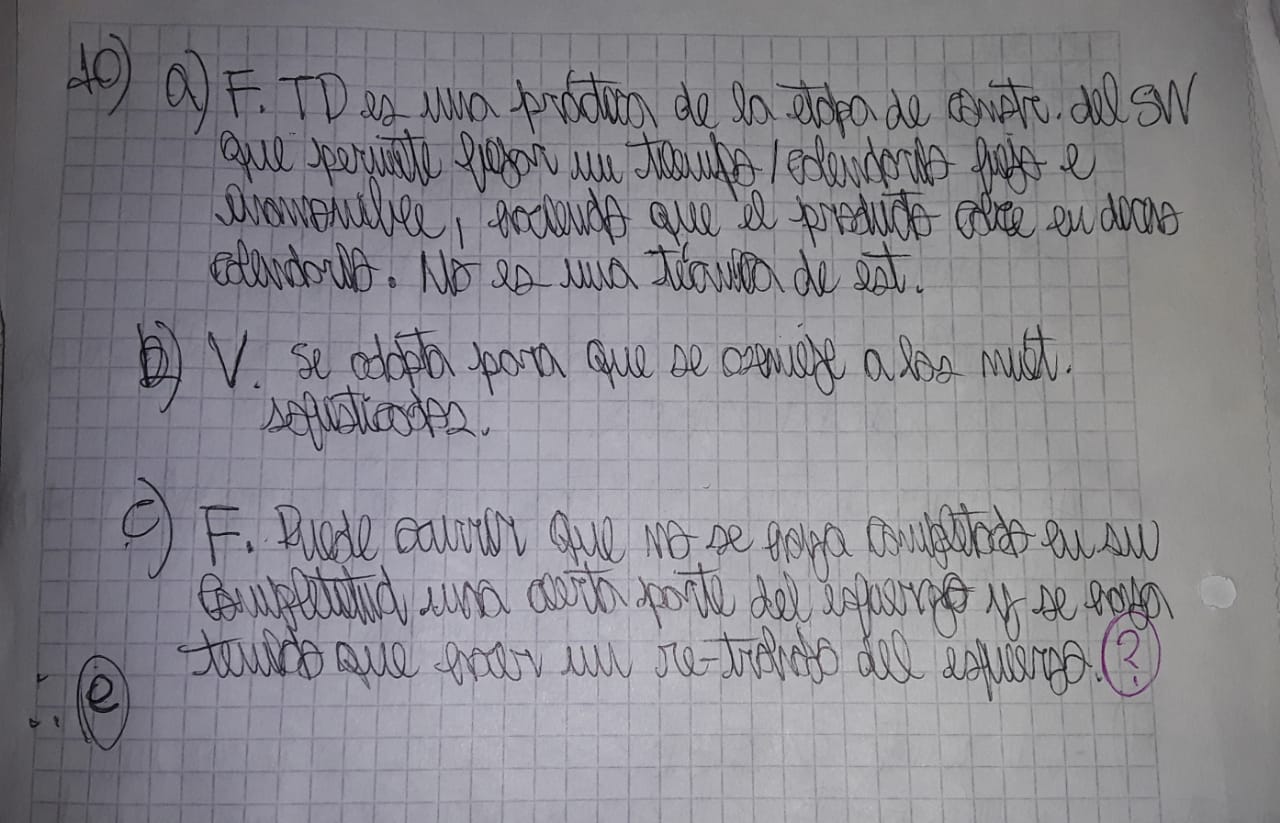 10) a) F. TD es una práctica de la etapa de constr. del SW
que permite fijar un tiempo/calendario fijo e
inamovible, haciendo que el producto entre en dicho
calendario. No es una técnica de est.
b) V. Se adapta para que se asemeje a los mét.
sofisticados.
c) F. Puede ocurrir que no se haya completado en su
completitud una cierta parte del esfuerzo y se haya
tenido que hacer un re-trabajo del esfuerzo. ?
∴ e